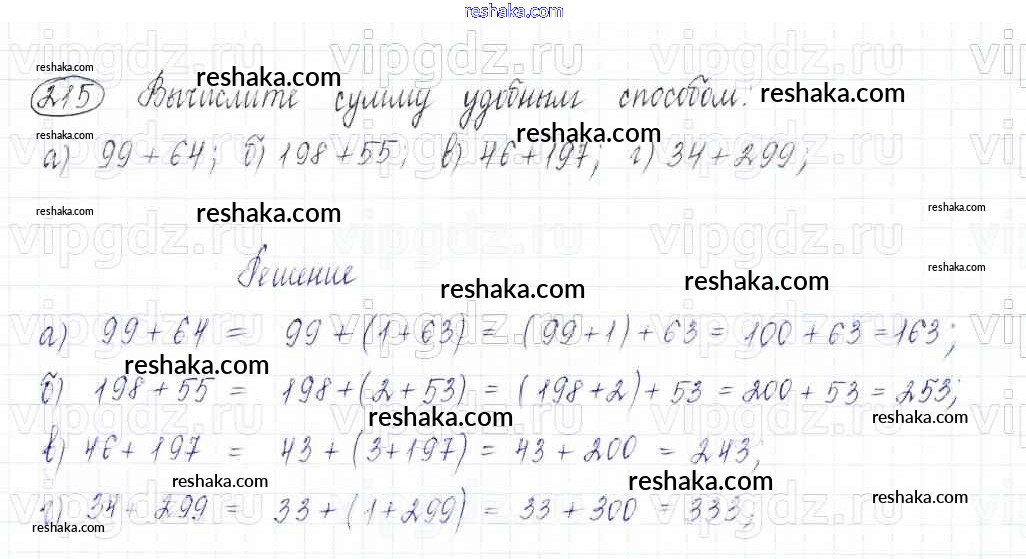 reshaka.com
reshaka.com
215 Вычислите сумму удобным способом: reshaka.com
reshaka.com reshaka.com
а) 99 + 64; б) 198 + 55; в) 46 + 197; г) 34 + 299;
reshaka.com reshaka.com reshaka.com
vipgdz.ru vipgdz.ru vipgdz.ru
Решение
reshaka.com reshaka.com reshaka.com
а) 99 + 64 = 99 + (1 + 63) = (99 + 1) + 63 = 100 + 63 = 163;
reshaka.com
б) 198 + 55 = 198 + (2 + 53) = (198 + 2) + 53 = 200 + 53 = 253;
reshaka.com reshaka.com
в) 46 + 197 = 43 + (3 + 197) = 43 + 200 = 243;
reshaka.com reshaka.com reshaka.com
г) 34 + 299 = 33 + (1 + 299) = 33 + 300 = 333;
reshaka.com